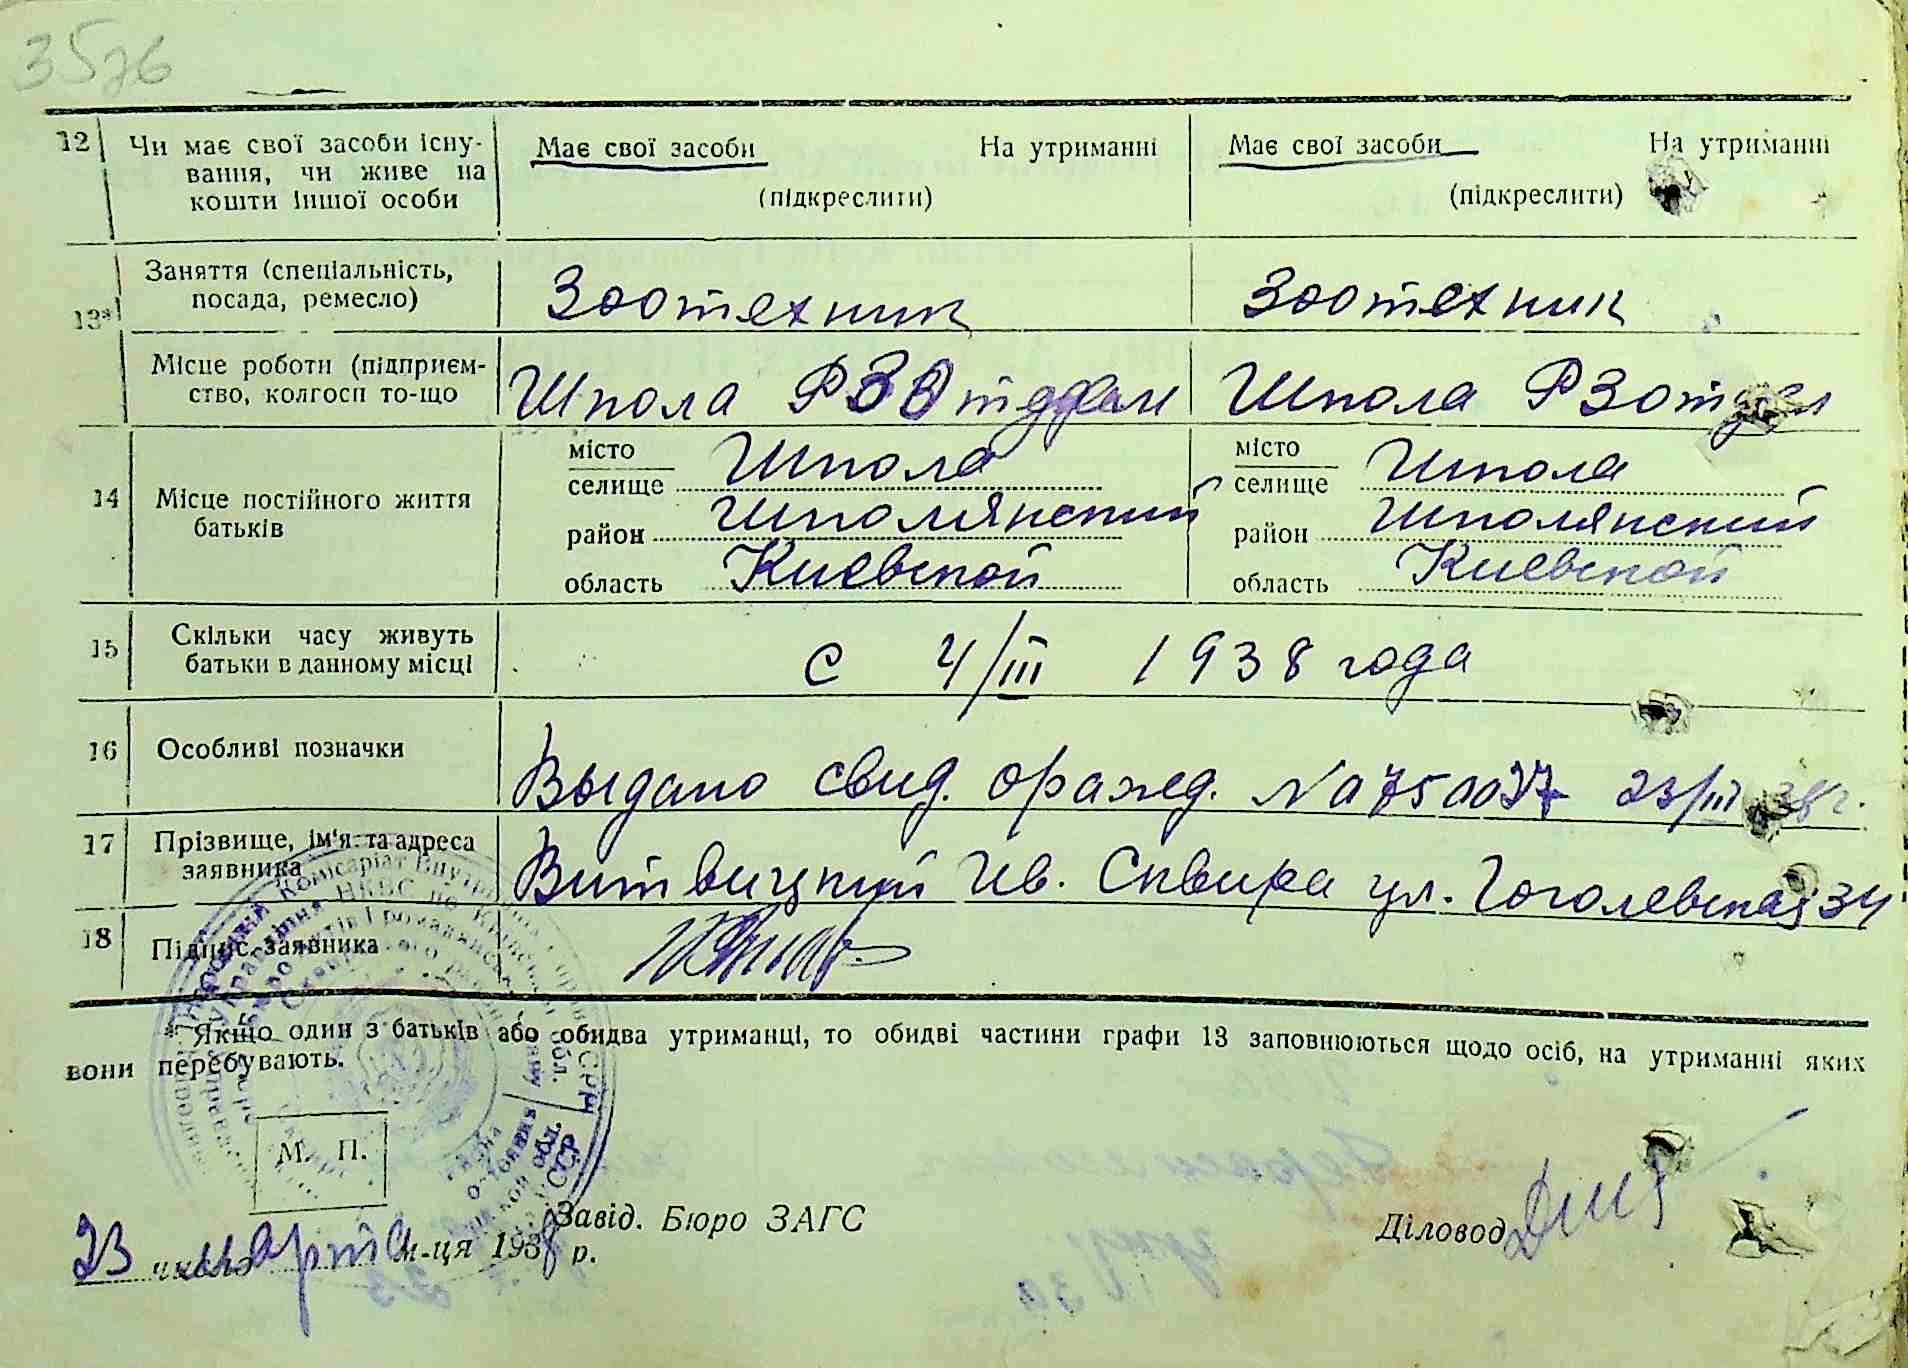 3576
12 Чи має свої засоби існу- Має свої засоби На утриманні Має свої засоби На утриманні
вання, чи живе на
кошти іншої особи (підкреслити) (підкреслити)
Заняття (спеціальність,
посада, ремесло) Зоотехник Зоотехник
13*
Місце роботи (підприєм-
ство, колгосп то-що Шпола РЗОтддел Шпола РЗотдел
місто Шпола місто Шпола
селище селище
14 Місце постійного життя район Шполянский район Шполянский
батьків
область Киевской область Киевской
15 Скільки часу живуть
батьки в данному місці с 4/III 1938 года
16 Особливі позначки
Выдано свид. оражед. 23/III 38 г.
17 Прізвище, ім'я та адреса
заявника Витвицкий Ив. Сквира ул. Гоголевская 34
18 Підпис заявника
* Якщо один з батьків або обидва утриманці, то обидві частини графи 13 заповнюються щодо осіб, на утриманні яких
вони перебувають.
М. П.
Завід. Бюро ЗАГС Діловод
23 числа марта м-ця 1938 р.